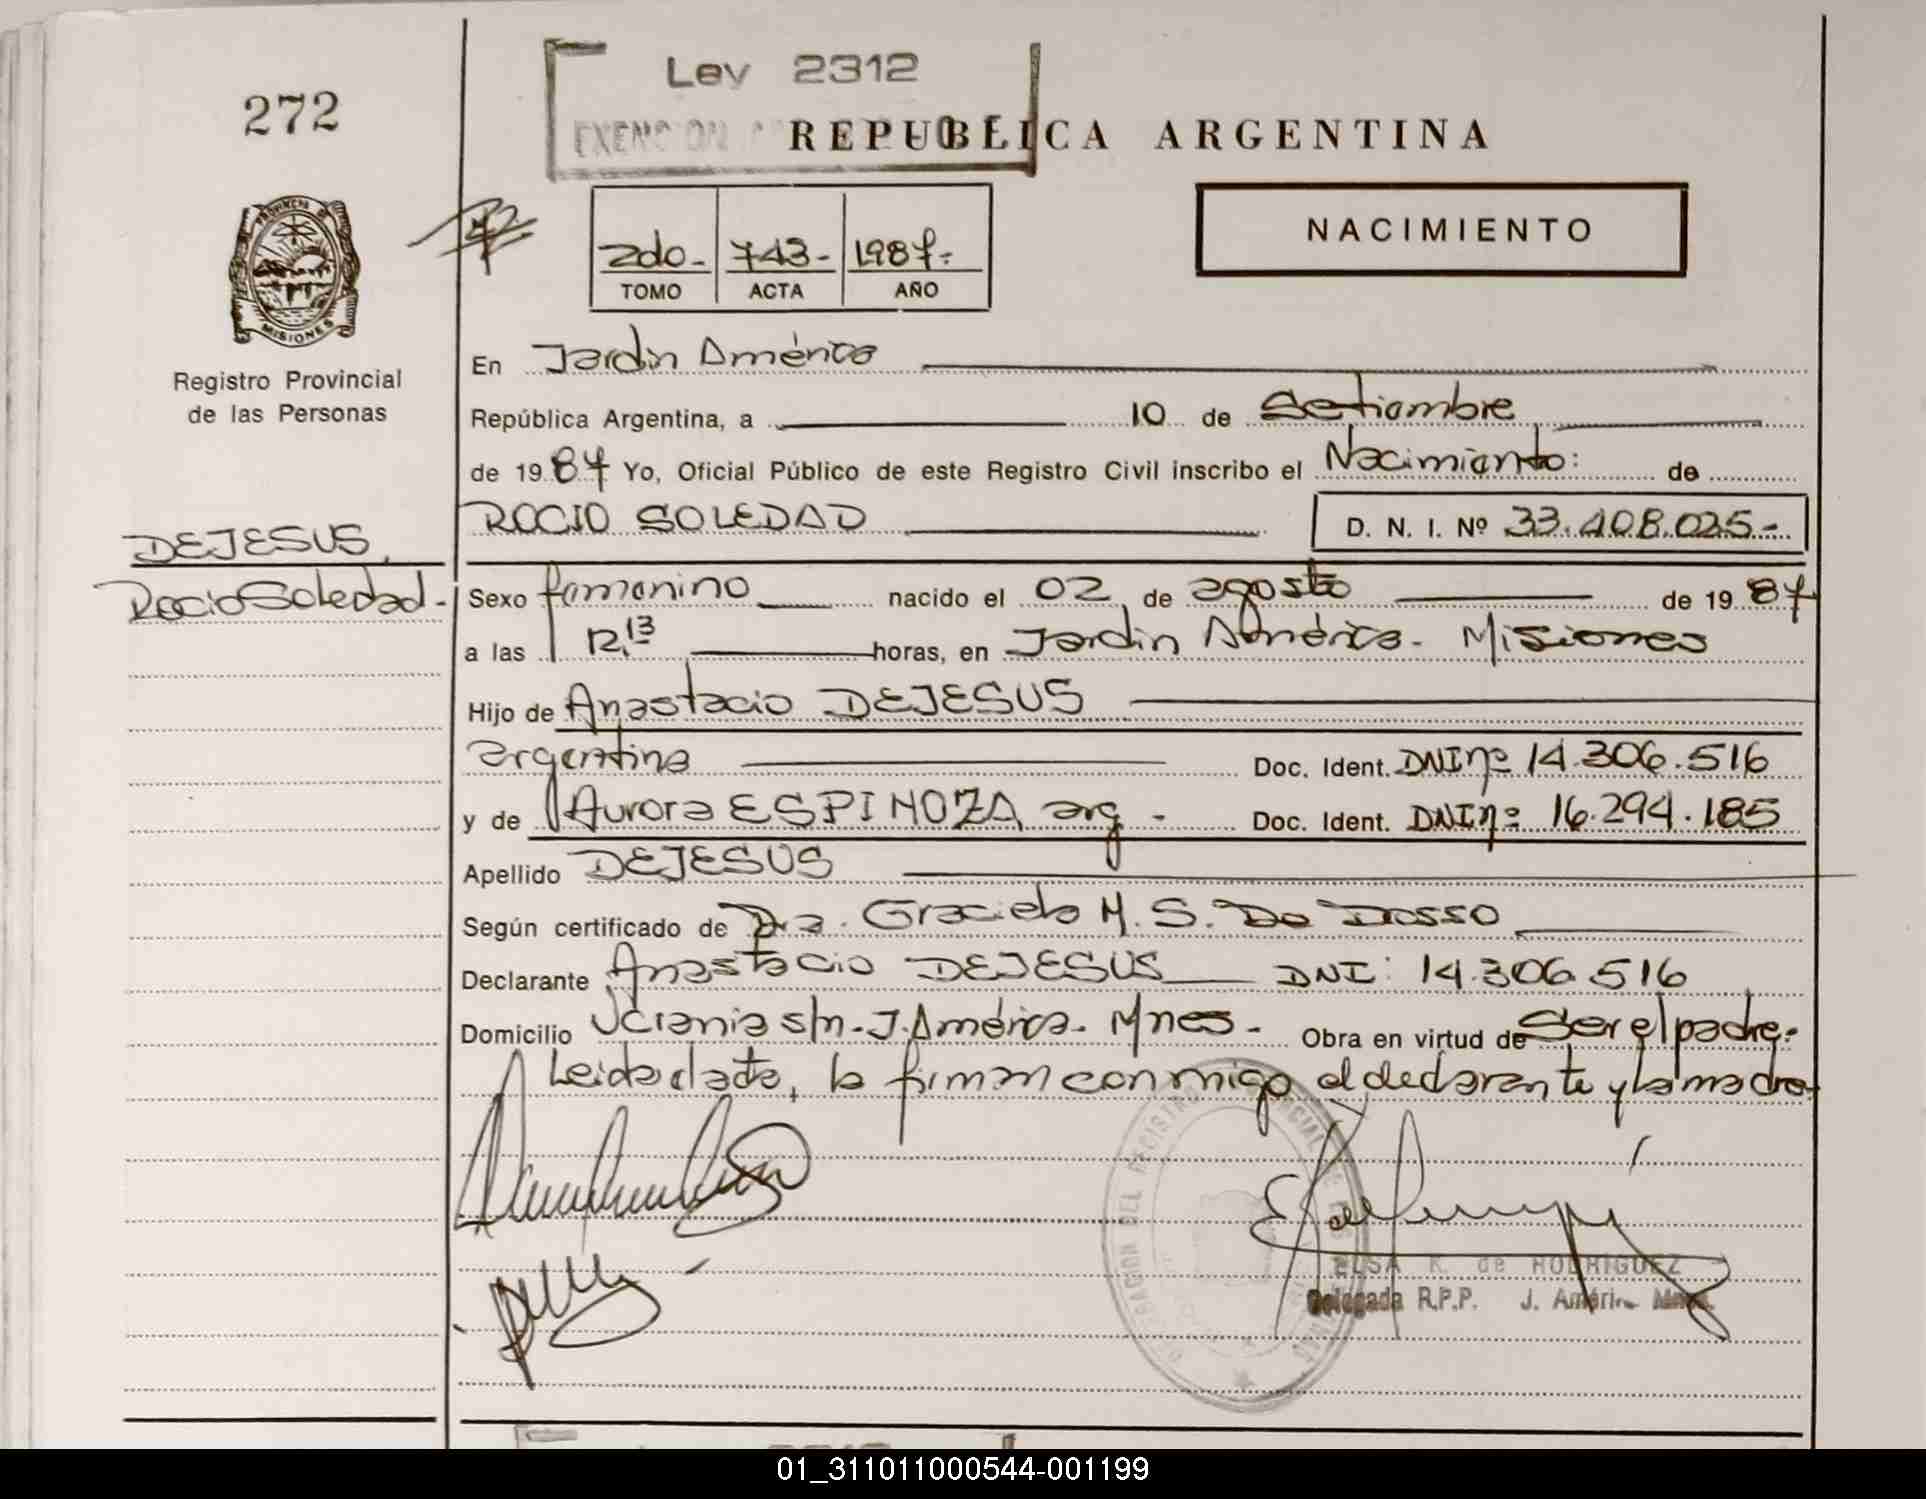 272
Ley 2312
EXENCION
REPUBLICA ARGENTINA
PROVINCIA DE
MISIONES
Registro Provincial
de las Personas
2do- 743- 1987-
TOMO ACTA AÑO
NACIMIENTO
En Jardin América
República Argentina, a 10 de Setiembre
de 1987 Yo, Oficial Público de este Registro Civil inscribo el Nacimiento: de
ROCIO SOLEDAD D. N. I. Nº 33.408.025-
DEJESUS,
Rocio Soledad-
Sexo femenino nacido el 02 de agosto de 1987
a las 12,13 horas, en Jardin América- Misiones
Hijo de Anastacio DEJESUS
argentina Doc. Ident. DNI nº 14.306.516
y de Aurora ESPINOZA, arg - Doc. Ident. DNI nº 16.294.185
Apellido DEJESUS
Según certificado de Dra. Graciela M. S. De Dasso
Declarante Anastacio DEJESUS DNI: 14.306.516
Domicilio Ucrania s/n- J. América- Mnes- Obra en virtud de Ser el padre-
Leida el acta, la firman conmigo el declarante y la madre
DELEGACION DEL REGISTRO PROVINCIAL DE LAS PERSONAS
ELSA K. de RODRIGUEZ
Delegada R.P.P. J. América Mnes.
01_311011000544-001199